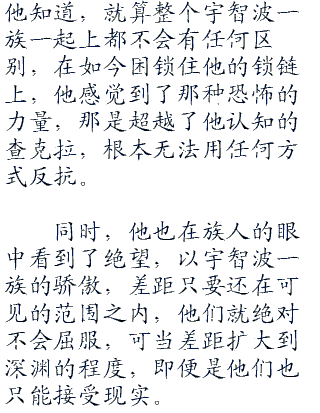 他知道，就算整个宇智波一
族一起上都不会有任何区
别，在如今困锁住他的锁链
上，他感觉到了那种恐怖的
力量，那是超越了他认知的
查克拉，根本无法用任何方
式反抗。
同时，他也在族人的眼
中看到了绝望，以宇智波一
族的骄傲，差距只要还在可
见的范围之内，他们就绝对
不会屈服，可当差距扩大到
深渊的程度，即便是他们也
只能接受现实。